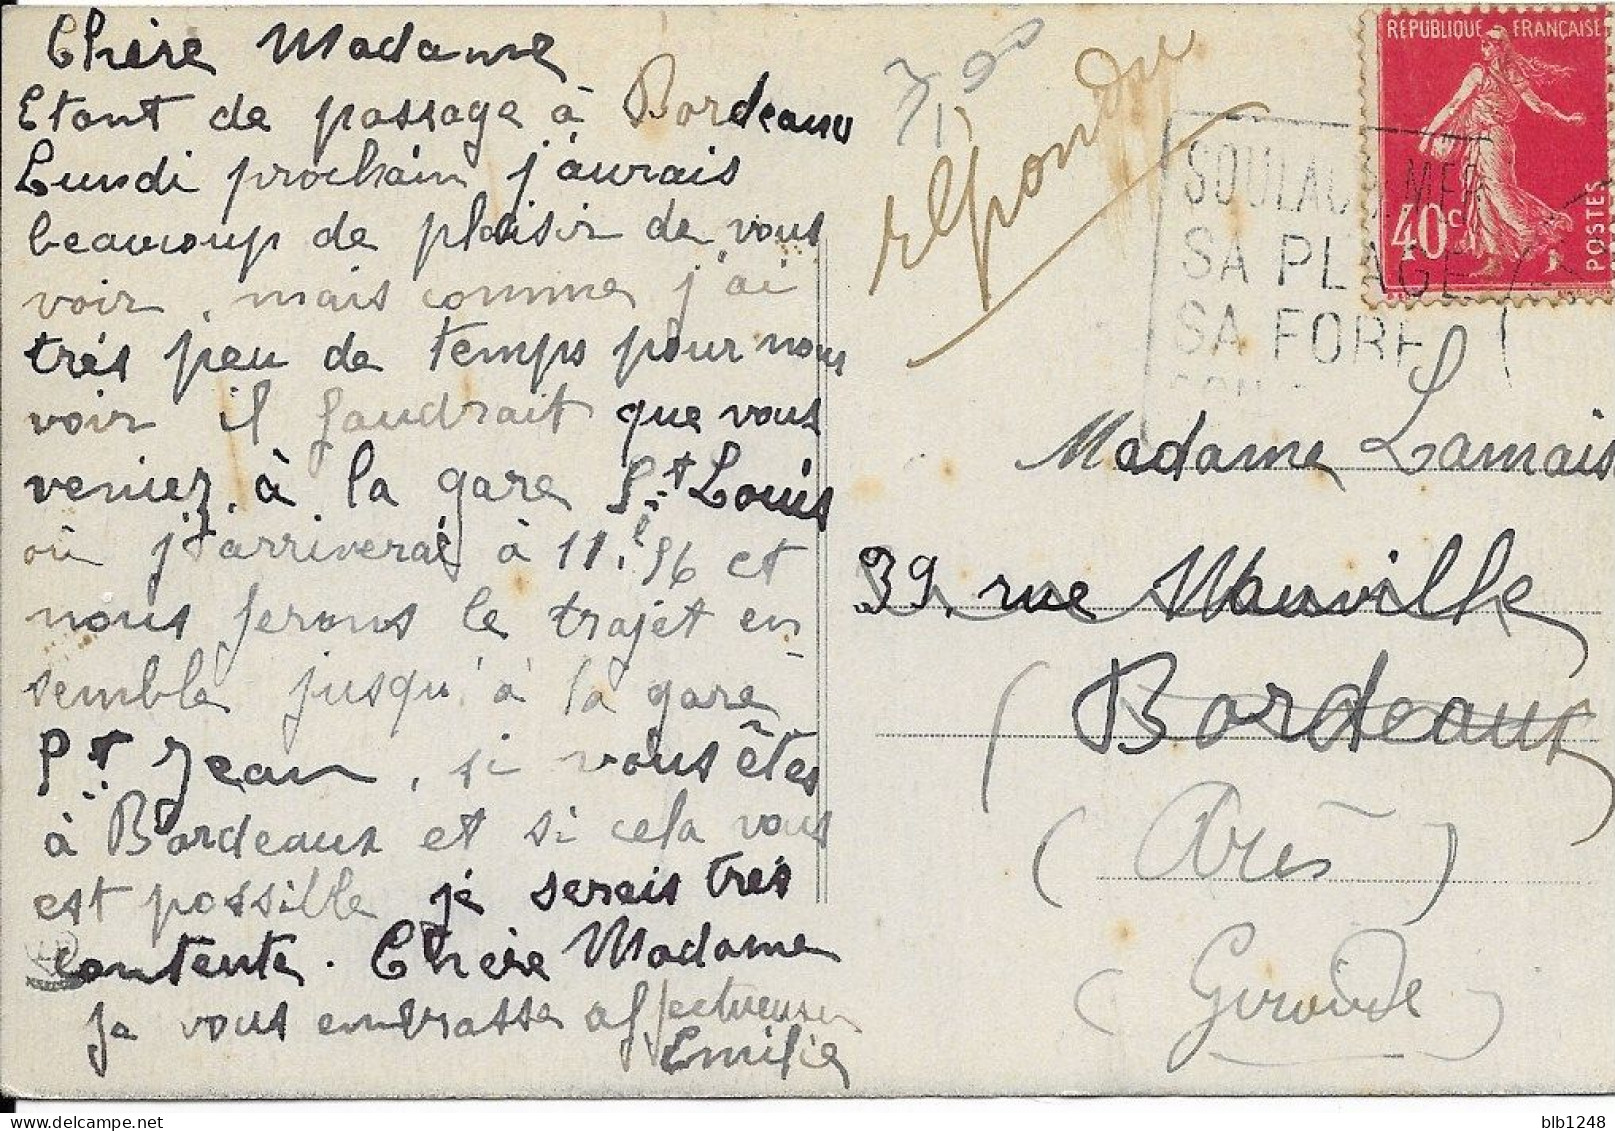 Chère Madame
Etant de passage à Bordeaux
Lundi prochain j'aurais
beaucoup de plaisir de vous
voir, mais comme j'ai
très peu de temps pour nous
voir il faudrait que vous
veniez à la gare St Louis
où j'arriverai à 11.h 56 et
nous ferons le trajet en-
semble jusqu'à la gare
St Jean, si vous êtes
à Bordeaux et si cela vous
est possible je serais très
contente. Chère Madame
je vous embrasse affectueusem
Emilie
répondre
RÉPUBLIQUE FRANÇAISE
40c
POSTES
SOULAC MER
SA PLAGE
SA FORE
Madame Lamais
39, rue
Bordeaux
(Arès)
(Gironde)
blb1248